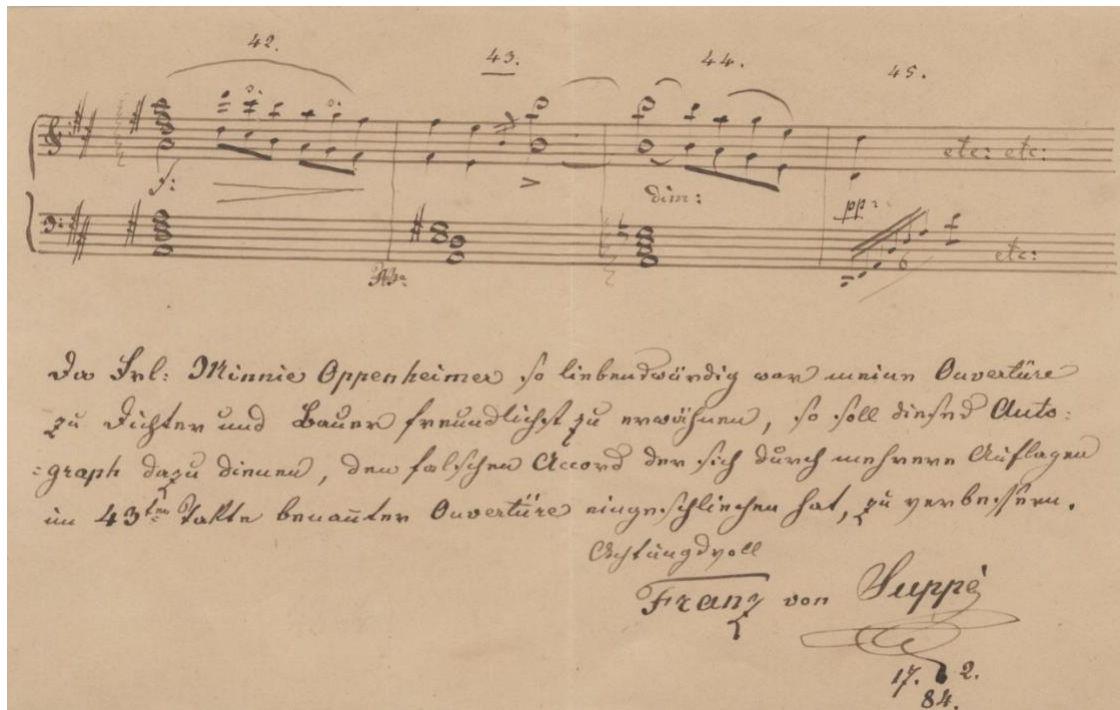 42. 43. 44. 45.
etc: etc:
f:
>
dim:
pp:
6
etc:
Da Frl: Minnie Oppenheimer so liebenswürdig war meine Ouvertüre
zu Dichter und Bauer freundlichst zu erwähnen, so soll dieses Auto:
:graph dazu dienen, den falschen Accord der sich durch mehrere Auflagen
im 43ten Takte benañter Ouvertüre eingeschlichen hat, zu verbessern.
Achtungsvoll
Franz von Suppè
17. 2.
84.